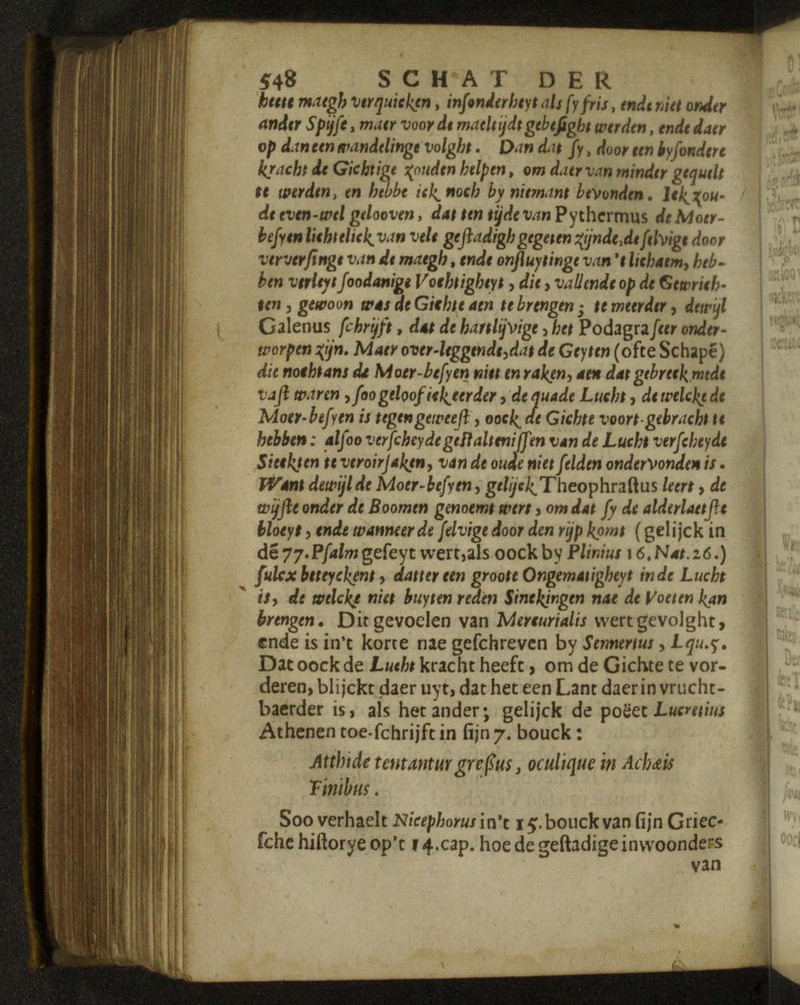 548 SCHAT DER
heete maegh verquicken, insonderheyt als sy fris, ende niet onder
ander Spijse, maer voor de maeltijdt gebesight werden, ende daer
op dan een wandelinge volght. Dan dat sy, door een bysondere
kracht de Gichtige zouden helpen, om daer van minder gequelt
te werden, en hebbe ick noch by niemant bevonden. Ick zou-
de even-wel gelooven, dat ten tijde van Pythermus de Moer-
besyen lichtelick van vele gestadigh gegeten zijnde, de selvige door
ververssinge van de maegh, ende onsluytinge van 't lichaem, heb-
ben verleyt soodanige Vochtigheyt, die, vallende op de Gewrich-
ten, gewoon was de Gichte aen te brengen; te meerder, dewijl
Galenus schrijft, dat de hartlijvige, het Podagra seer onder-
worpen zijn. Maer over-leggende, dat de Geyten (ofte Schapē)
die nochtans de Moer-besyen niet en raken, aen dat gebreck mede
vast waren, soo geloof ick eerder, de quade Lucht, de welcke de
Moer-besyen is tegen geweest, oock de Gichte voort-gebracht te
hebben: alsoo verscheyde gestalteniſſen van de Lucht verscheyde
Sieckten te veroirsaken, van de oude niet selden ondervonden is.
Want dewijl de Moer-besyen, gelijck Theophrastus leert, de
wijste onder de Boomen genoemt wert, om dat sy de alderlaetste
bloeyt, ende wanneer de selvige door den rijp komt (gelijck in
dē 77. Psalm gefeyt wert, als oock by Plinius 16. Nat. 26.)
sulcx beteyckent, datter een groote Ongematigheyt in de Lucht
is, de welcke niet buyten reden Sinckingen nae de Voeten kan
brengen. Dit gevoelen van Mercurialis wert gevolght,
ende is in't korte nae geschreven by Sennertus, Lqu.5.
Dat oock de Lucht kracht heeft, om de Gichte te vor-
deren, blijckt daer uyt, dat het een Lant daer in vrucht-
baerder is, als het ander; gelijck de poëet Lucretius
Athenen toe-schrijft in sijn 7. bouck:
Atthide tentantur gressus, oculique in Achæis
Finibus.
Soo verhaelt Nicephorus in't 15. bouck van sijn Griec-
sche historye op't 14.cap. hoe de gestadige inwoonders
van